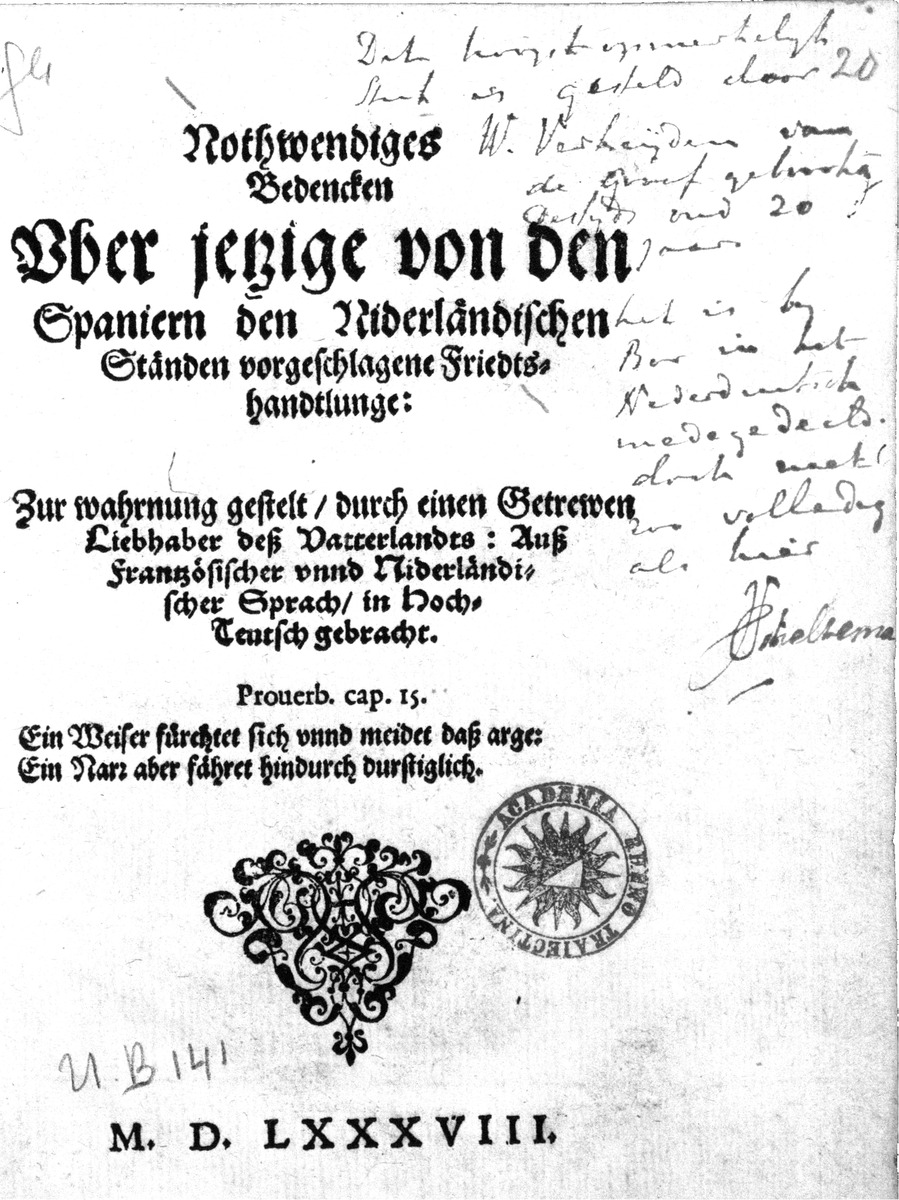 Dit hoogst opmerkelijk
stuk is gesteld door 20
W. Verheijden van
de Graaf geboortig
Destijds oud 20
jaar
het is by
Bor in het
Nederduitsch
medegedeeld.
doch niet
zoo volledig
als hier
Scheltema
Nothwendiges
Bedencken
Vber jetzige von den
Spaniern den Niderländischen
Ständen vorgeschlagene Friedts⸗
handtlunge:
Zur wahrnung gestelt / durch einen Getrewen
Liebhaber deß Vatterlandts : Auß
Frantzösischer vnnd Niderländi⸗
scher Sprach/ in Hoch⸗
Teutsch gebracht.
Prouerb. cap. 15.
Ein Weiser fürchtet sich vnnd meidet daß arge:
Ein Narr aber fähret hindurch durstiglich.
ACADEMIA RHENO TRAIECTINA
U. B 141
M. D. LXXXVIII.